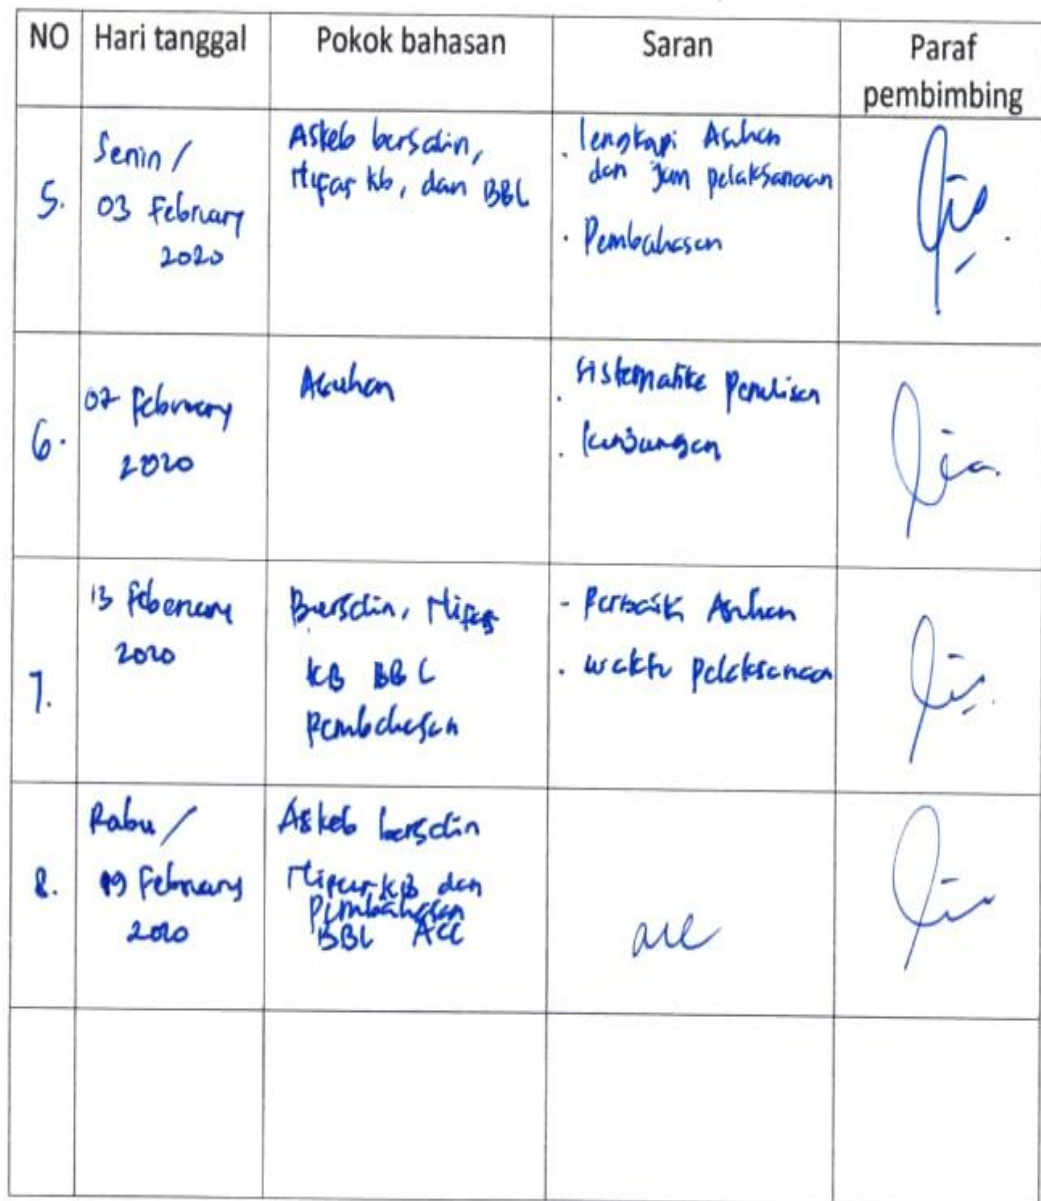 NO Hari tanggal Pokok bahasan Saran Paraf
pembimbing
5.
Senin /
03 February
2020
Askeb bersalin,
Nifas kb, dan BBL
. lengkapi Asuhan
dan jam pelaksanaan
. Pembahasan
6.
07 February
2020
Asuhan
. Sistematika Penulisan
. kunjungan
7.
13 Febenuary
2020
Bersalin, Nifas
KB BBL
Pembahasan
- Perbaiki Asuhan
. waktu pelaksanaan
8.
Rabu /
19 February
2020
Askeb bersalin
Nifas KB dan
Pembahasan
BBL ACC
acc